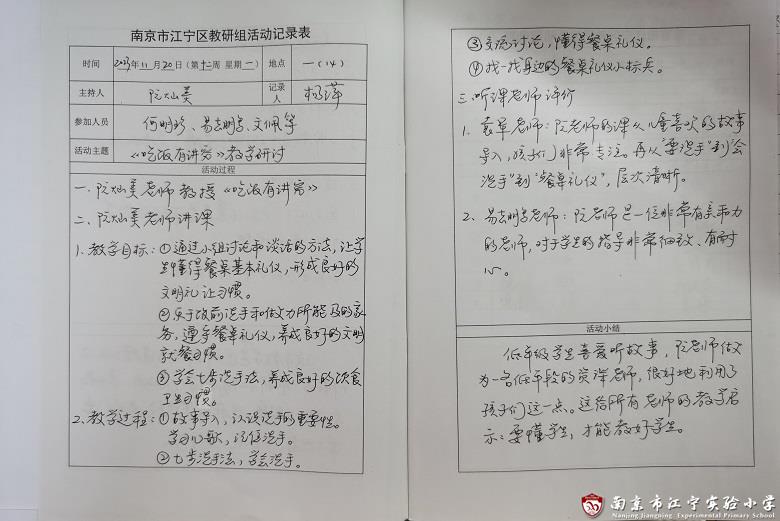 南京市江宁区教研组活动记录表
时间 2023年11月20日(第十二周 星期一) 地点 一(14)
主持人 阮灿美 记录人 杨萍
参加人员 何明珍、易去明、文佩等
活动主题 《吃饭有讲究》教学研讨
活动过程
一、阮灿美老师教授《吃饭有讲究》
二、阮灿美老师讲课
1、教学目标:①通过小组讨论和谈话的方法,让学
生懂得餐桌基本礼仪,形成良好的
文明礼让习惯。
②乐于饭前洗手和做力所能及的家
务,遵守餐桌礼仪,养成良好的文明
就餐习惯。
③学会七步洗手法,养成良好的饮食
卫生习惯。
2、教学过程:①故事导入,认识洗手的重要性。
学习儿歌,记住洗手。
②七步洗手法,学会洗手。
③交流讨论,懂得餐桌礼仪。
④找一找身边的餐桌礼仪小标兵。
三、听课老师评价
1、袁草老师:阮老师的课从儿童喜欢的故事
导入,孩子们非常专注。再从“要洗手”到“会
洗手”到“餐桌礼仪”,层次清晰。
2、老师:阮老师是一位非常有亲和力
的老师,对于学生的指导非常细致、有耐
心。
活动小结
低年级学生喜爱听故事,阮老师作
为一名低年段的资深老师,很好地利用了
孩子们这一点。这给所有老师的教学启
示:要懂学生,才能教好学生。
南京市江宁实验小学
Nanjing Jiangning Experimental Primary School